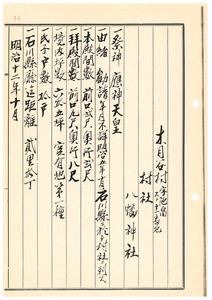 木目谷村字宅地
村社
八幡神社
一祭神 應神天皇
一由緒 勧請年月不詳明治五年十月石川縣ニ於テ村社ニ列ス
一本殿間数 前口弐尺奥行弐尺
一拝殿間数 前口九尺奥行八尺
一境内坪数 六拾五坪 官有地第一種
一氏子戸数 拾戸
一石川縣廳迄距離 貮里拾丁
明治十二年十一月